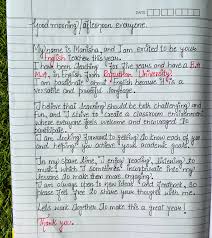 DATE
Good morning/afternoon everyone.
My name is Manisha, and I am excited to be your
English teacher this year.
I have been teaching for the years and have a B.A
M.A. in English from Rajasthan University.
I am passionate about English because it is a
versatile and powerful language.
I believe that learning should be both challenging and
fun, and I strive to create a classroom environment
where everyone feels welcome and encouraged to
participate.
I am looking forward to getting to know each of you
and helping you achieve your academic goals.
In my spare time, I enjoy reading, listening to
music which I sometimes incorporate into my
lessons to make them more engaging.
I am always open to new ideas and feedback, so
please feel free to share your thoughts with me.
Let's work together to make this a great year!
Thank you.